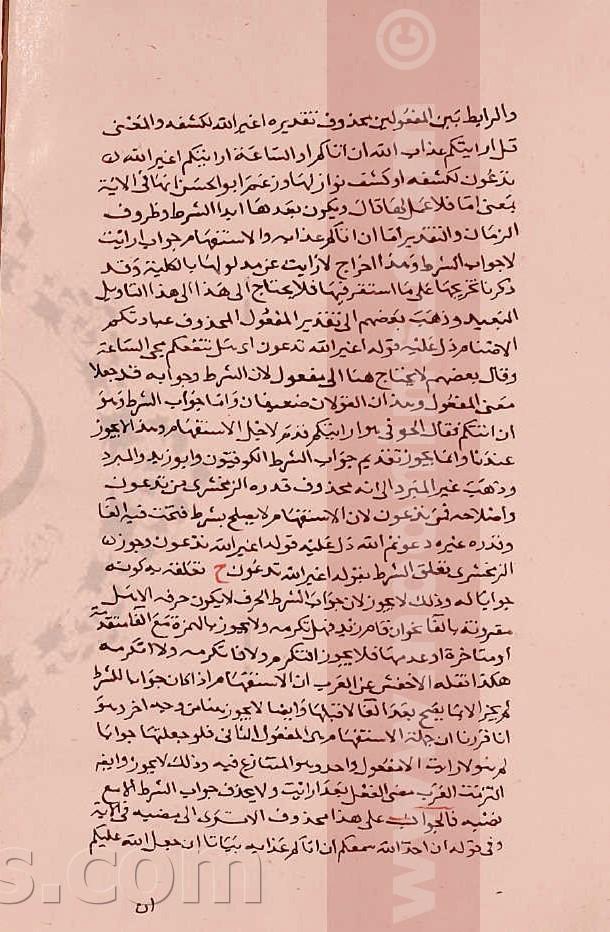 والرابط بين المفعولين محذوف تقديره اغير الله لكشفه والمعنى
قل ارايتكم عذاب الله ان اتاكم او الساعة ارايتكم اغير الله
تدعون لكشفه او كشف نوازلها وزعم ابو الحسن انها في الاية
بمعنى اما فلا عمل لها قال ويكون بعدها ابدا الشرط وظروف
الزمان والتقدير اما ان اتاكم عذابه والاستفهام جواب ارايت
لا جواب الشرط وهذا اخراج لارايت عن مدلولها بالكلية وقد
ذكرنا تخريجها على ما استقر فيها فلا يحتاج الى هذا التاويل
البعيد وذهب بعضهم الى تقدير المفعول المحذوف عبادتكم
الاصنام دل عليه قوله اغير الله تدعون اي هل تنفعكم مجي الساعة
وقال بعضهم لا يحتاج هنا الى مفعول لان الشرط وجوابه قد حصلا
معنى المفعول وهذان القولان ضعيفان واما جواب الشرط وهو
ان اتتكم فقال الحوفي هو ارايتكم قدم لاجل الاستفهام وهذا لا يجوز
عندنا وانما يجوز تقديم جواب الشرط الكوفيون وابو زيد والمبرد
وذهب غير المبرد الى انه محذوف قدره الزمخشري من تدعون
واصلاحه فمن تدعون لان الاستفهام لا يصلح بشرط فتحت فيه الفا
وقدره غيره دعوتم الله دل عليه قوله اغير الله تدعون وجوز
الزمخشري تعلق الشرط بقوله اغير الله تدعون ح تعلقه به كونه
جوابا له وذلك لا يجوز لان جواب الشرط الحرف لا يكون حرفه الا هل
مقرونة بالفا نحو ان قام زيد فهل تكرمه ولا يجوز بالهمزة مع الفا متقدمة
او متاخرة او عدمها فلا يجوز افتكرم ولا فاتكرمه ولا اتكرمه
هكذا نقله الاخفش عن العرب ان الاستفهام اذا كان جوابا للشرط
لم يجز الا بما يصح بعد الفا لا قبلها وايضا لا يجوز هنا من وجه اخر وهو
انا قررنا ان جملة الاستفهام هي المفعول الثاني فلو جعلتها جوابا
لم يبق لارايت الا مفعول واحد وهو المتنازع فيه وذلك لا يجوز وايضا
التزمت العرب مضي الفعل بعد ارايت ولا يحذف جواب الشرط الا مع
مضيه فالجواب على هذا محذوف الا ترى الى مضيه في الاية
وفي قوله ان اخذ الله سمعكم ان اتاكم عذابه بياتا ان جعل الله عليكم
ان